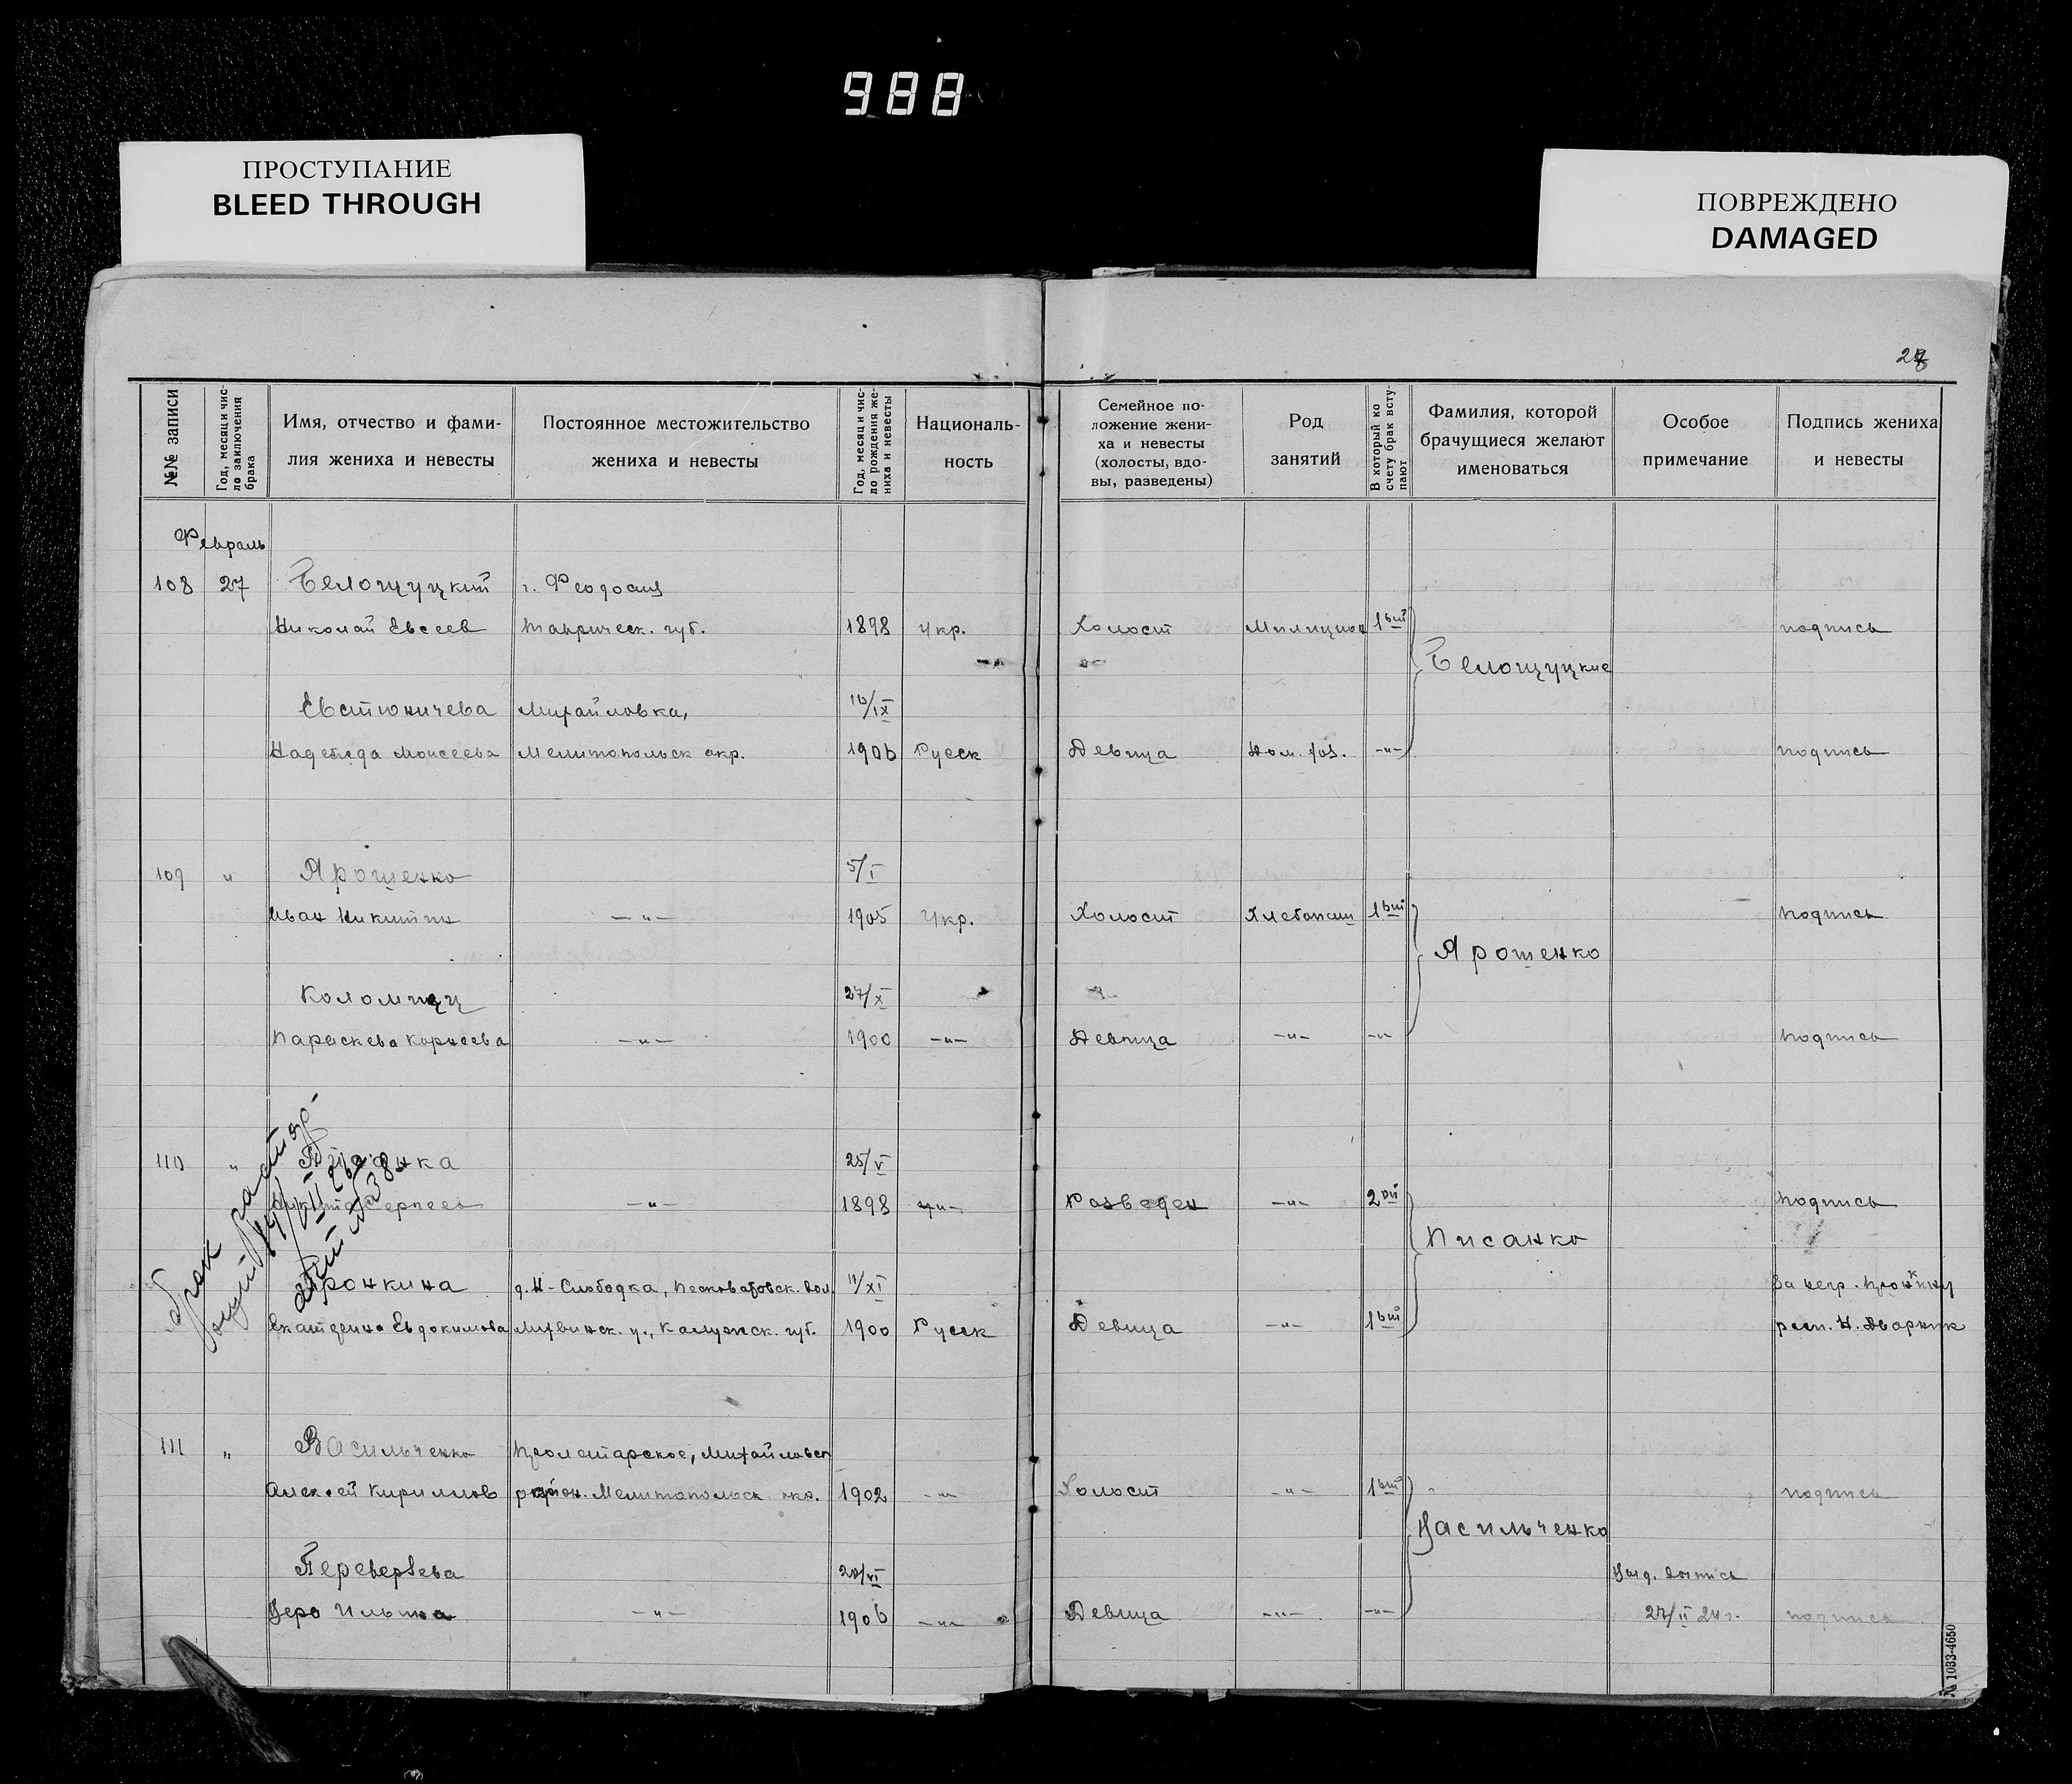 988
ПРОСТУПАНИЕ
BLEED THROUGH
ПОВРЕЖДЕНО
DAMAGED
№№ записи
Год, месяц и чис-
ло заключения
брака
Имя, отчество и фами-
лия жениха и невесты
Постоянное местожительство
жениха и невесты
Год, месяц и чис-
ло рождения же-
ниха и невесты
Националь-
ность
Семейное по-
ложение жени-
ха и невесты
(холосты, вдо-
вы, разведены)
Род
занятий
В который ко
счету брак всту-
пают
Фамилия, которой
брачущиеся желают
именоваться
Особое
примечание
Подпись жениха
и невесты
Февраль
108 27 Белощуцкий г. Феодосия
Николай Евсеев Таврическ. губ. 1898 Укр. Холост Милицион 1ый подпись
Белощуцкие
Евстюничева Михайловка, 16/IX
Надежда Моисеева Мелитопольск окр. 1906 Русск Девица Дом. хоз. -"- подпись
109 " Ярошенко 5/I
Иван Никитин -"- 1905 Укр. Холост Хлебопаш 1ый подпись
Ярошенко
Коломиец 27/X
Параскева Корнеева -"- 1900 -"- Девица -"- -"- подпись
Брак расторг
110 " 25/V
-"- 1898 -"- Разведен -"- 2ой подпись
Писанко
Пронкина д. Н-Слободка, вол. 11/XI За негр. Пронкину
Екатерина Евдокимова у., Калужск. губ. 1900 Русск Девица -"- 1ый расп. Н. Дворник
111 " Васильченко Пролетарское, Михайловск
Алексей Кириллов район. Мелитопольск окр. 1902 -"- Холост -"- 1ый подпись
Васильченко
Переверзева 20/VI
Вера Ильина -"- 1906 -"- Девица -"- -"- 27/II 24 г. подпись
№ 1033-4650